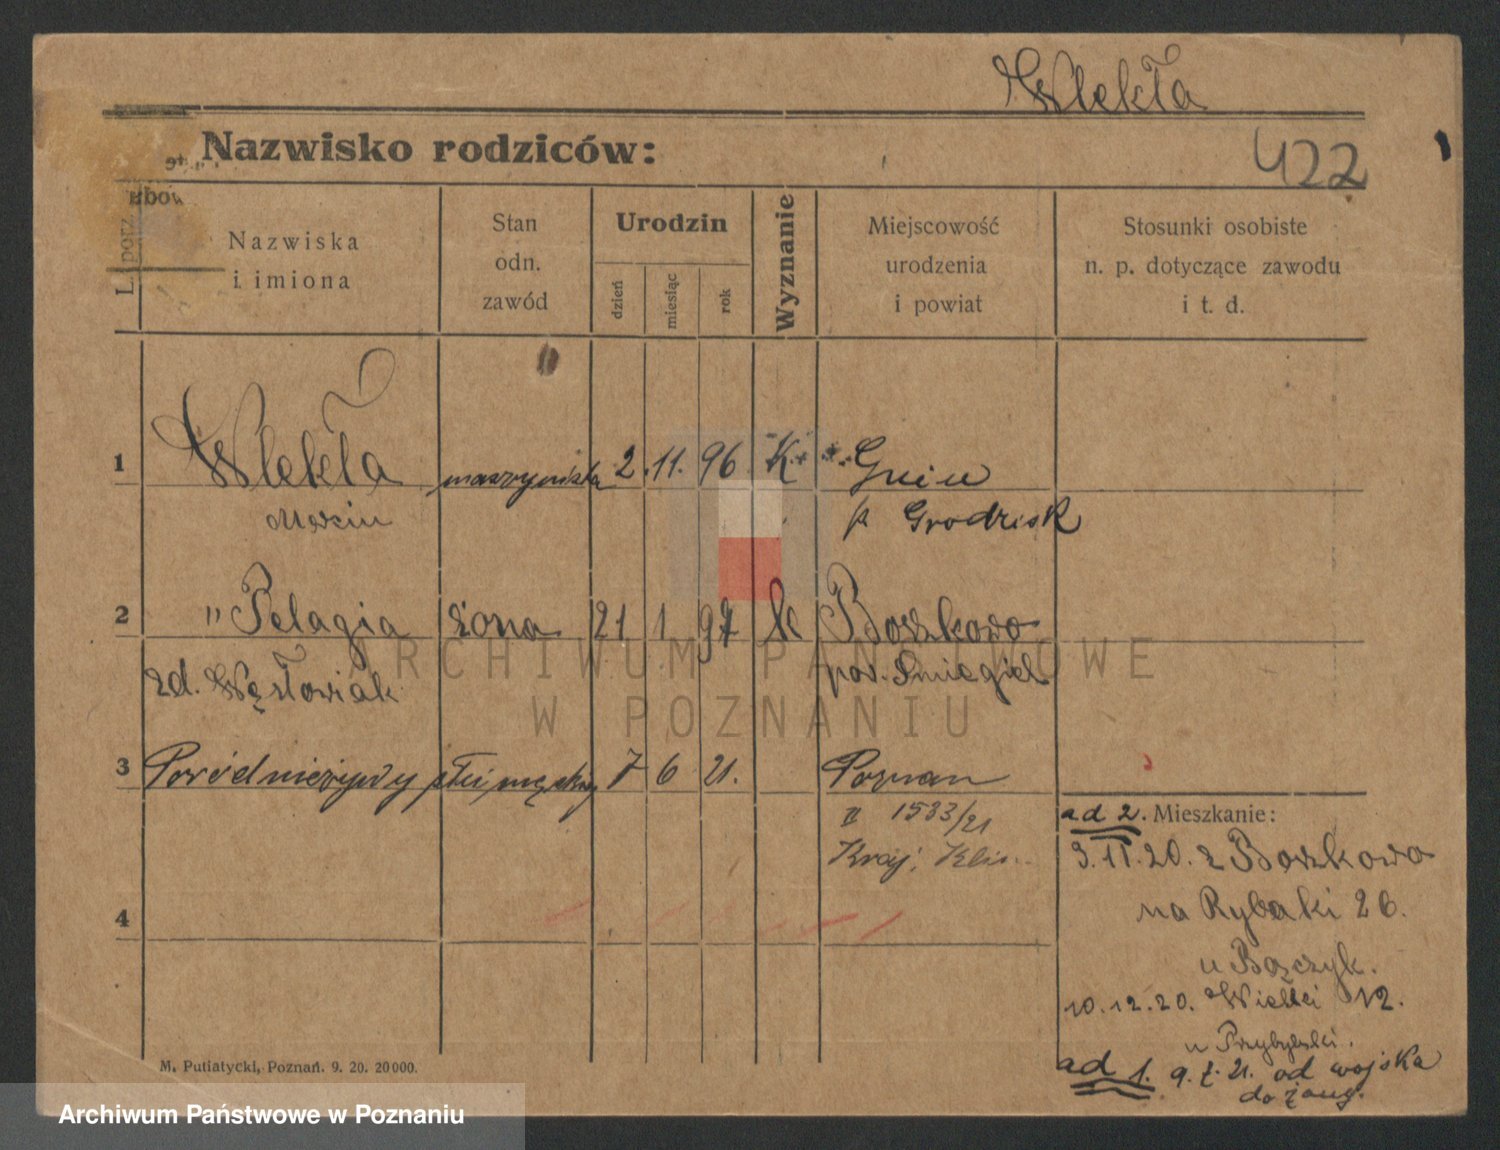 Wlekła
Nazwisko rodziców:
422
L. porz.
Nazwiska
i imiona
Stan
odn.
zawód
Urodzin
dzień
miesiąc
rok
Wyznanie
Miejscowość
urodzenia
i powiat
Stosunki osobiste
n. p. dotyczące zawodu
i t. d.
1 Wlekła maszynista 2. 11. 96 K Gnin
Marcin p. Grodzisk
2 " Pelagia żona 21 1 97 k Boszkowo
zd. pow. Śmiegiel
3 Poród nieżywy płci męskiej 7 6 21. Poznan
II 1533/21
ad 2. Mieszkanie:
3.11.20. z Boszkowo
na Rybaki 26.
u Bączyk.
4
10.12.20. Wielki 12.
u Przybylski.
ad 1. 9. 21. od wojska
do żony.
M. Putiatycki, Poznań. 9. 20. 20000.
ARCHIWUM PAŃSTWOWE
W POZNANIU
Archiwum Państwowe w Poznaniu